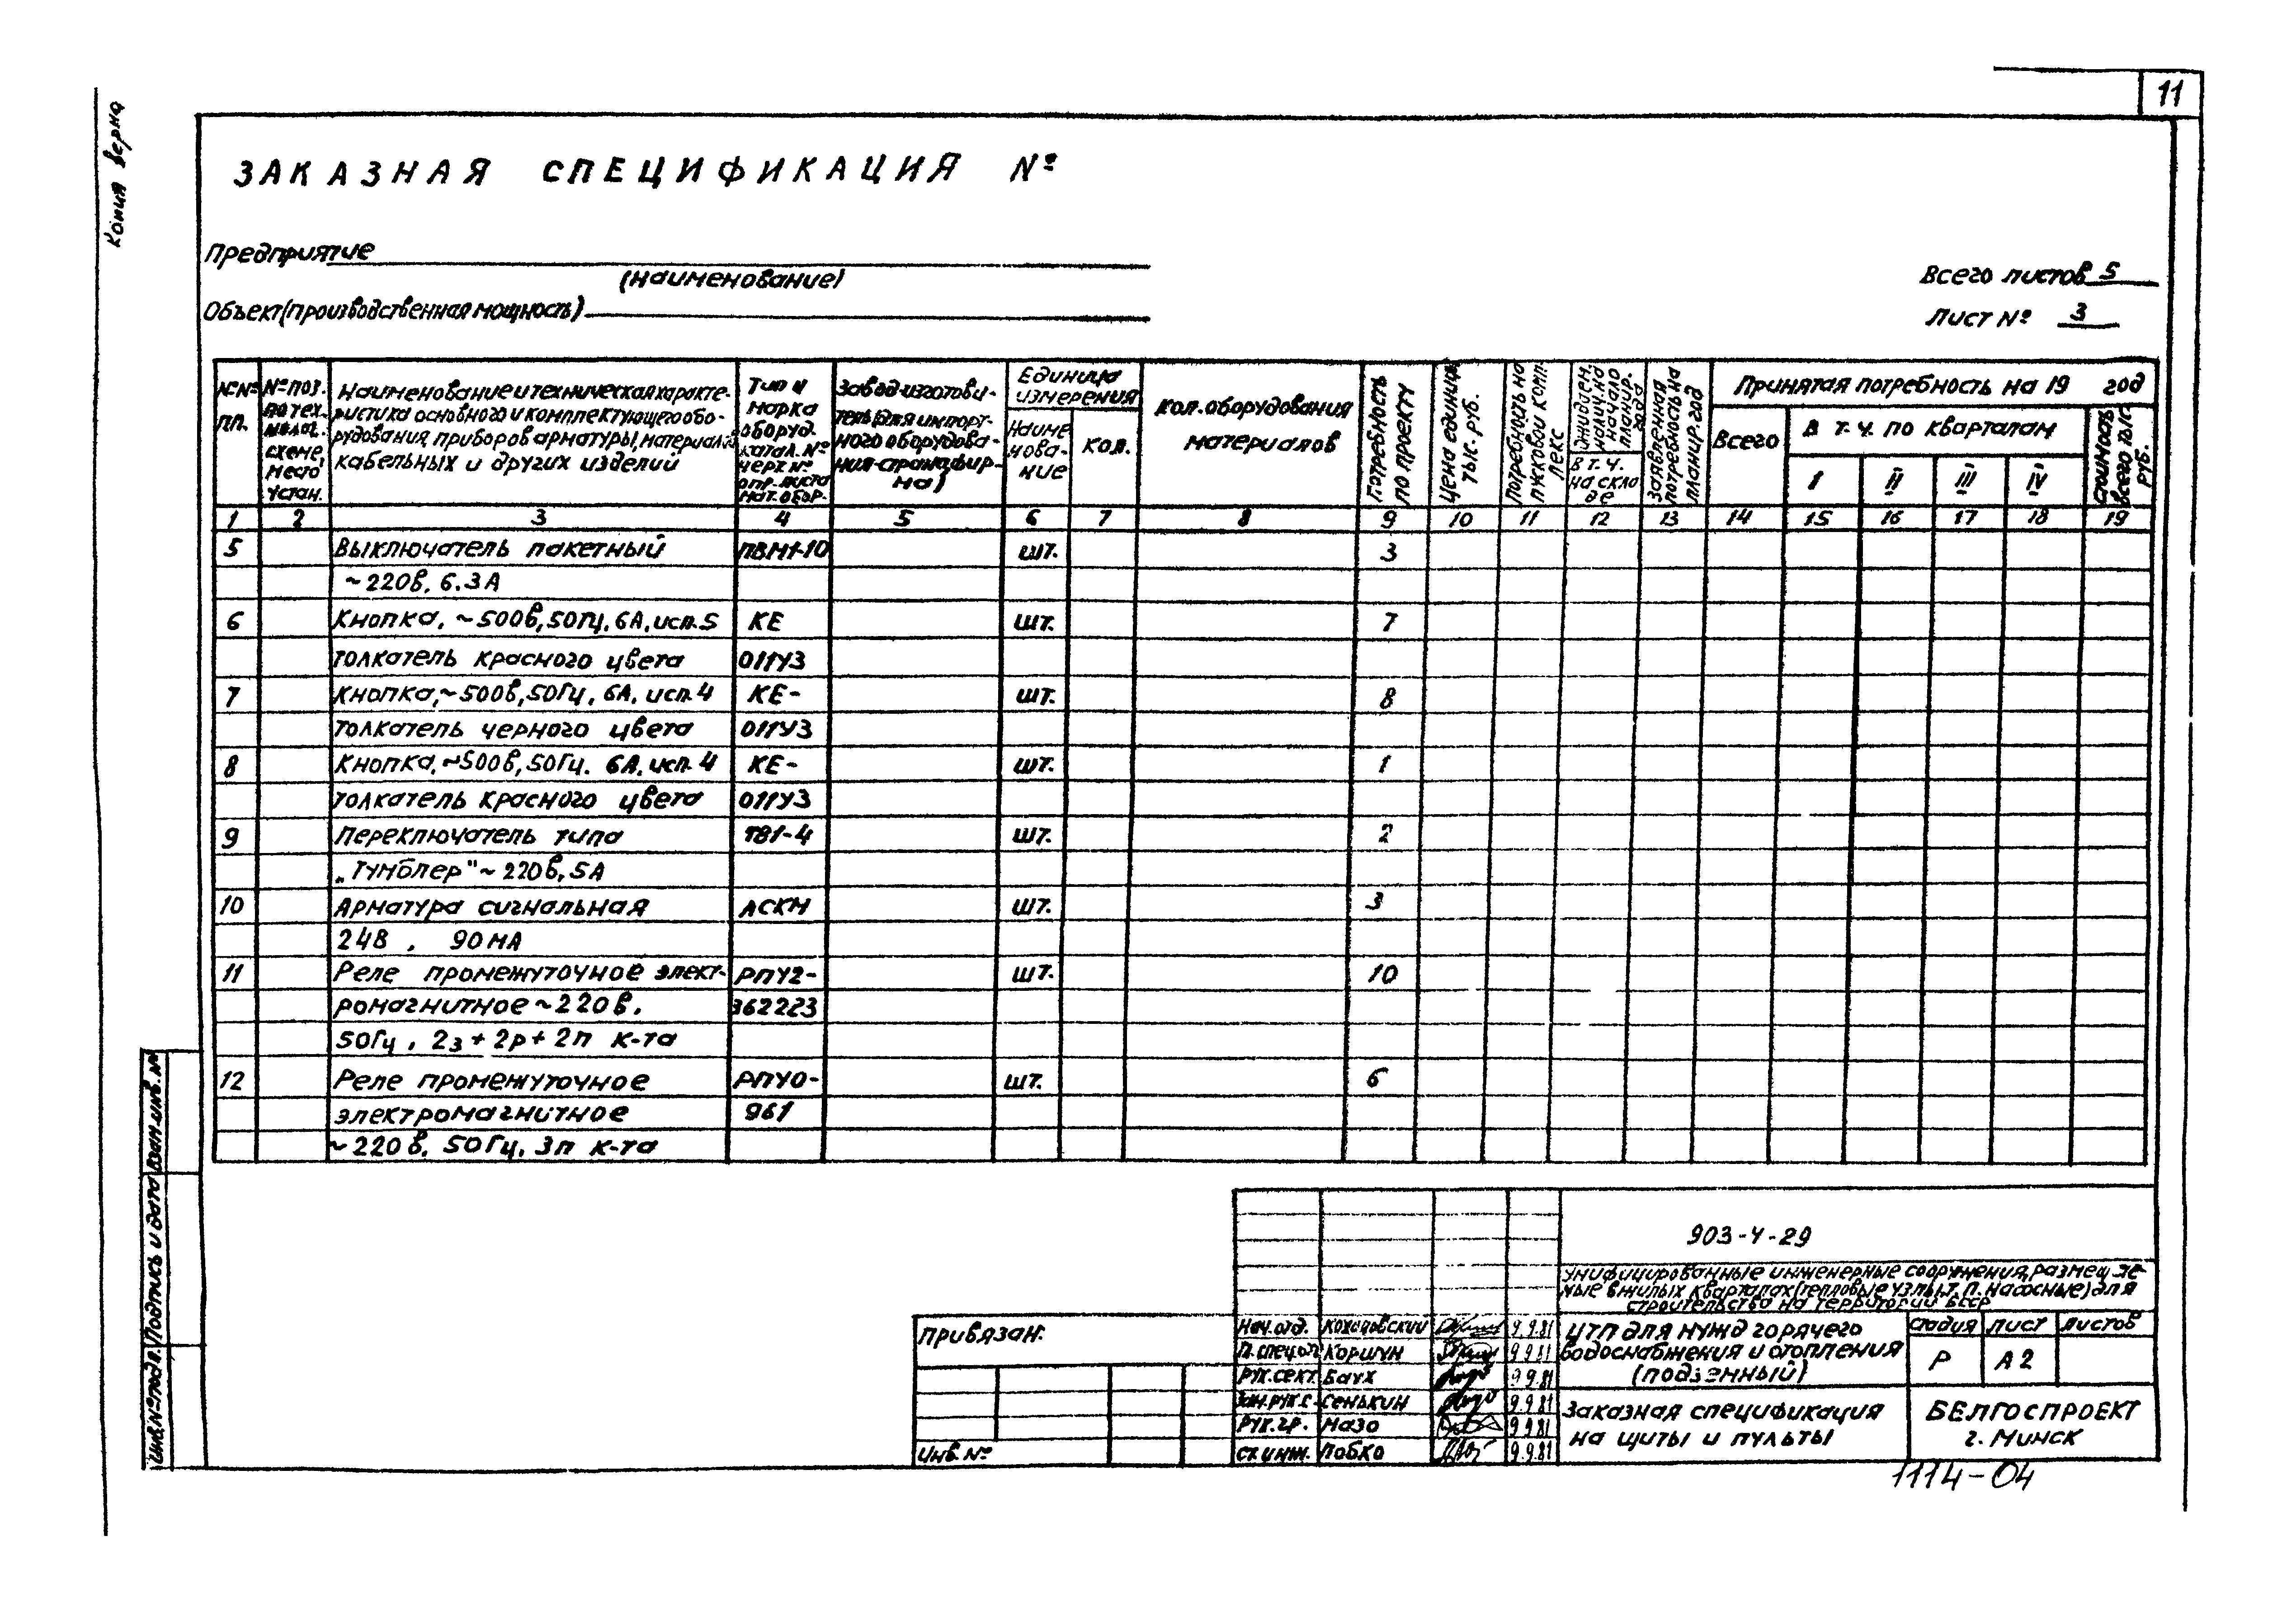 11
Копия верна
ЗАКАЗНАЯ СПЕЦИФИКАЦИЯ №
Предприятие
(наименование)
Объект (производственная мощность)
Всего листов 5
Лист № 3
№№ пп.
№ поз. по технолог. схеме, место устан.
Наименование и техническая характе-
ристика основного и комплектующего обо-
рудования, приборов арматуры, материалов
кабельных и других изделий
Тип и
марка
оборуд.
катал. №
черт. №
опр. листа
мат. обор.
Завод-изготови-
тель (для импорт-
ного оборудова-
ния-страна, фир-
ма)
Единица
измерения
Наиме
нова-
ние
Кол.
Кол. оборудования
материалов
Потребность
по проекту
Цена единицы
тыс. руб.
Потребность на
пусковой комп-
лекс
Ожидаем.
налич. на
начало
планир.
года
В т. ч.
на скла
де
Заявленная
потребность на
планир. год
Принятая потребность на 19 год
Всего
В т. ч. по кварталам
I II III IV
Стоимость
всего тыс.
руб.
1 2 3 4 5 6 7 8 9 10 11 12 13 14 15 16 17 18 19
5 Выключатель пакетный ПВМ1-10 шт. 3
~220в, 6.3А
6 Кнопка, ~500в, 50Гц, 6А, исп. 5 КЕ шт. 7
толкатель красного цвета 011У3
7 Кнопка, ~500в, 50Гц, 6А, исп. 4 КЕ- шт. 8
толкатель черного цвета 011У3
8 Кнопка, ~500в, 50Гц. 6А, исп. 4 КЕ- шт. 1
толкатель красного цвета 011У3
9 Переключатель типа ТВ1-4 шт. 2
„Тумблер" ~220в, 5А
10 Арматура сигнальная АСКМ шт. 3
24В, 90мА
11 Реле промежуточное элект- РПУ2- шт. 10
ромагнитное ~220в, 362223
50Гц, 2з+2р+2п к-та
12 Реле промежуточное РПУ0- шт. 6
электромагнитное 961
~220в, 50Гц, 3п к-та
Инв. № подл. Подпись и дата Взам. инв. №
903-4-29
Унифицированные инженерные сооружения, размещае-
мые в жилых кварталах (тепловые узлы, т. п. насосные) для
строительства на территории БССР
Привязан:
Инв. №
Нач. отд. 9.9.81
Гл. спец. от. Коршун 9.9.81
Рук. сект. Баух 9.9.81
Зам. рук. с. Сенькин 9.9.81
Рук. гр. Мазо 9.9.81
Ст. инж. Лобко 9.9.81
ЦТП для нужд горячего
водоснабжения и отопления
(подземный)
Стадия Лист Листов
Р А2
Заказная спецификация
на щиты и пульты
БЕЛГОСПРОЕКТ
г. Минск
1114-04